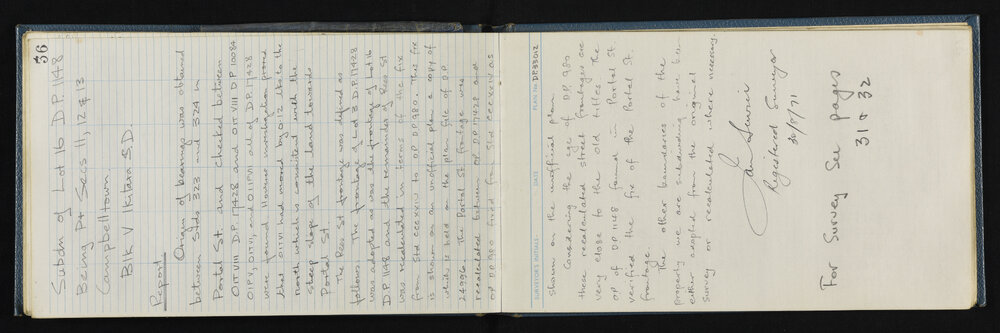 36
Subdn of Lot 16 D.P. 1148
Being Pt Secs 11, 12 & 13
Campbelltown
Blk V Ikitara S.D
Report
Origin of bearings was obtained
between Stds 323 and 324 in
Portal St and checked between
O.I.T. VIII D.P. 17428 and O.I.T. VIII D.P. 10084
O.I.P. V, O.I.T. VI, and O.I.I.P. VII all of D.P. 17428
were found &
the O.I.T. VI had moved by 0.12 lks to the
north which is consistent with the
steep slope of the land towards
Portal St
The Rees St frontage was defined as
follows. The frontage of Lot 3 D.P. 17428
was adopted as was the frontage of Lot 16
D.P. 1148 and the remainder of Rees St
was recalculated in terms of the fix
from Std CCCXXIV to D.P. 980. This fix
is shown on an unofficial plan a copy of
which is held on the plan file of D.P.
24996. The Portal St frontage was
recalculated between O.P. D.P. 17428 and
O.P. D.P. 980 fixed from Std CCCXXIV as
PLAN No. D.P. 33012
DATE
SURVEYORS INITIALS
shown on the unofficial plan.
Considering the age of D.P. 980
these recalculated street frontages are
very close to the old titles. The
O.P. of D.P. 1148 found in Portal St
verified the fix of the Portal St.
frontage.
The other boundaries of the
property we are subdividing have been
either adopted from the original
survey or recalculated where necessary.
Registered Surveyor
30/8/71
For Survey See pages
31 & 32